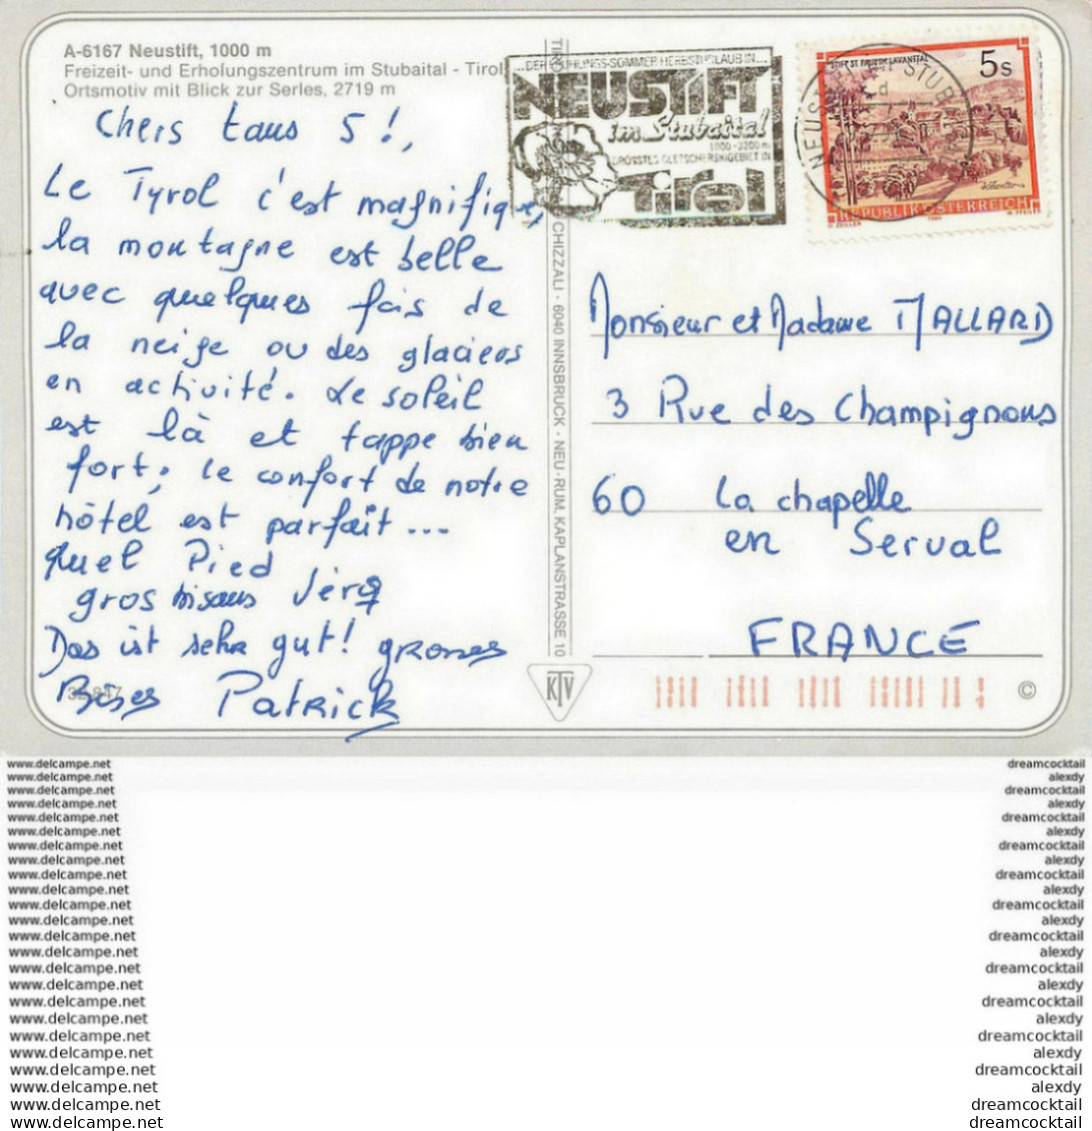 A-6167 Neustift, 1000 m
Freizeit- und Erholungszentrum im Stubaital - Tirol
Ortsmotiv mit Blick zur Serles, 2719 m
Chers tous 5 !,
Le Tyrol c'est magnifique,
la montagne est belle
avec quelques fois de
la neige ou des glaciers
en activité. Le soleil
est là et tappe bien
fort; le confort de notre
hôtel est parfait...
quel Pied
gros bisous
Das ist sehr gut! grosses
Bises Patrick
32 847
CHIZZALI · 6040 INNSBRUCK · NEU-RUM, KAPLANSTRASSE 10
KTV
NEUSTIFT
im Stubaital
1000-3200 m
GRÖSSTES GLETSCHERSKIGEBIET IN
Tirol
STIFT ST. PAUL IM LAVANTTAL
5 S
REPUBLIK ÖSTERREICH
Monsieur et Madame MALLARD
3 Rue des Champignons
60 La chapelle
en Serval
FRANCE
©
www.delcampe.net dreamcocktail
www.delcampe.net alexdy
www.delcampe.net dreamcocktail
www.delcampe.net alexdy
www.delcampe.net dreamcocktail
www.delcampe.net alexdy
www.delcampe.net dreamcocktail
www.delcampe.net alexdy
www.delcampe.net dreamcocktail
www.delcampe.net alexdy
www.delcampe.net dreamcocktail
www.delcampe.net alexdy
www.delcampe.net dreamcocktail
www.delcampe.net alexdy
www.delcampe.net dreamcocktail
www.delcampe.net alexdy
www.delcampe.net dreamcocktail
www.delcampe.net alexdy
www.delcampe.net dreamcocktail
www.delcampe.net alexdy
www.delcampe.net dreamcocktail
www.delcampe.net alexdy
www.delcampe.net dreamcocktail
www.delcampe.net dreamcocktail